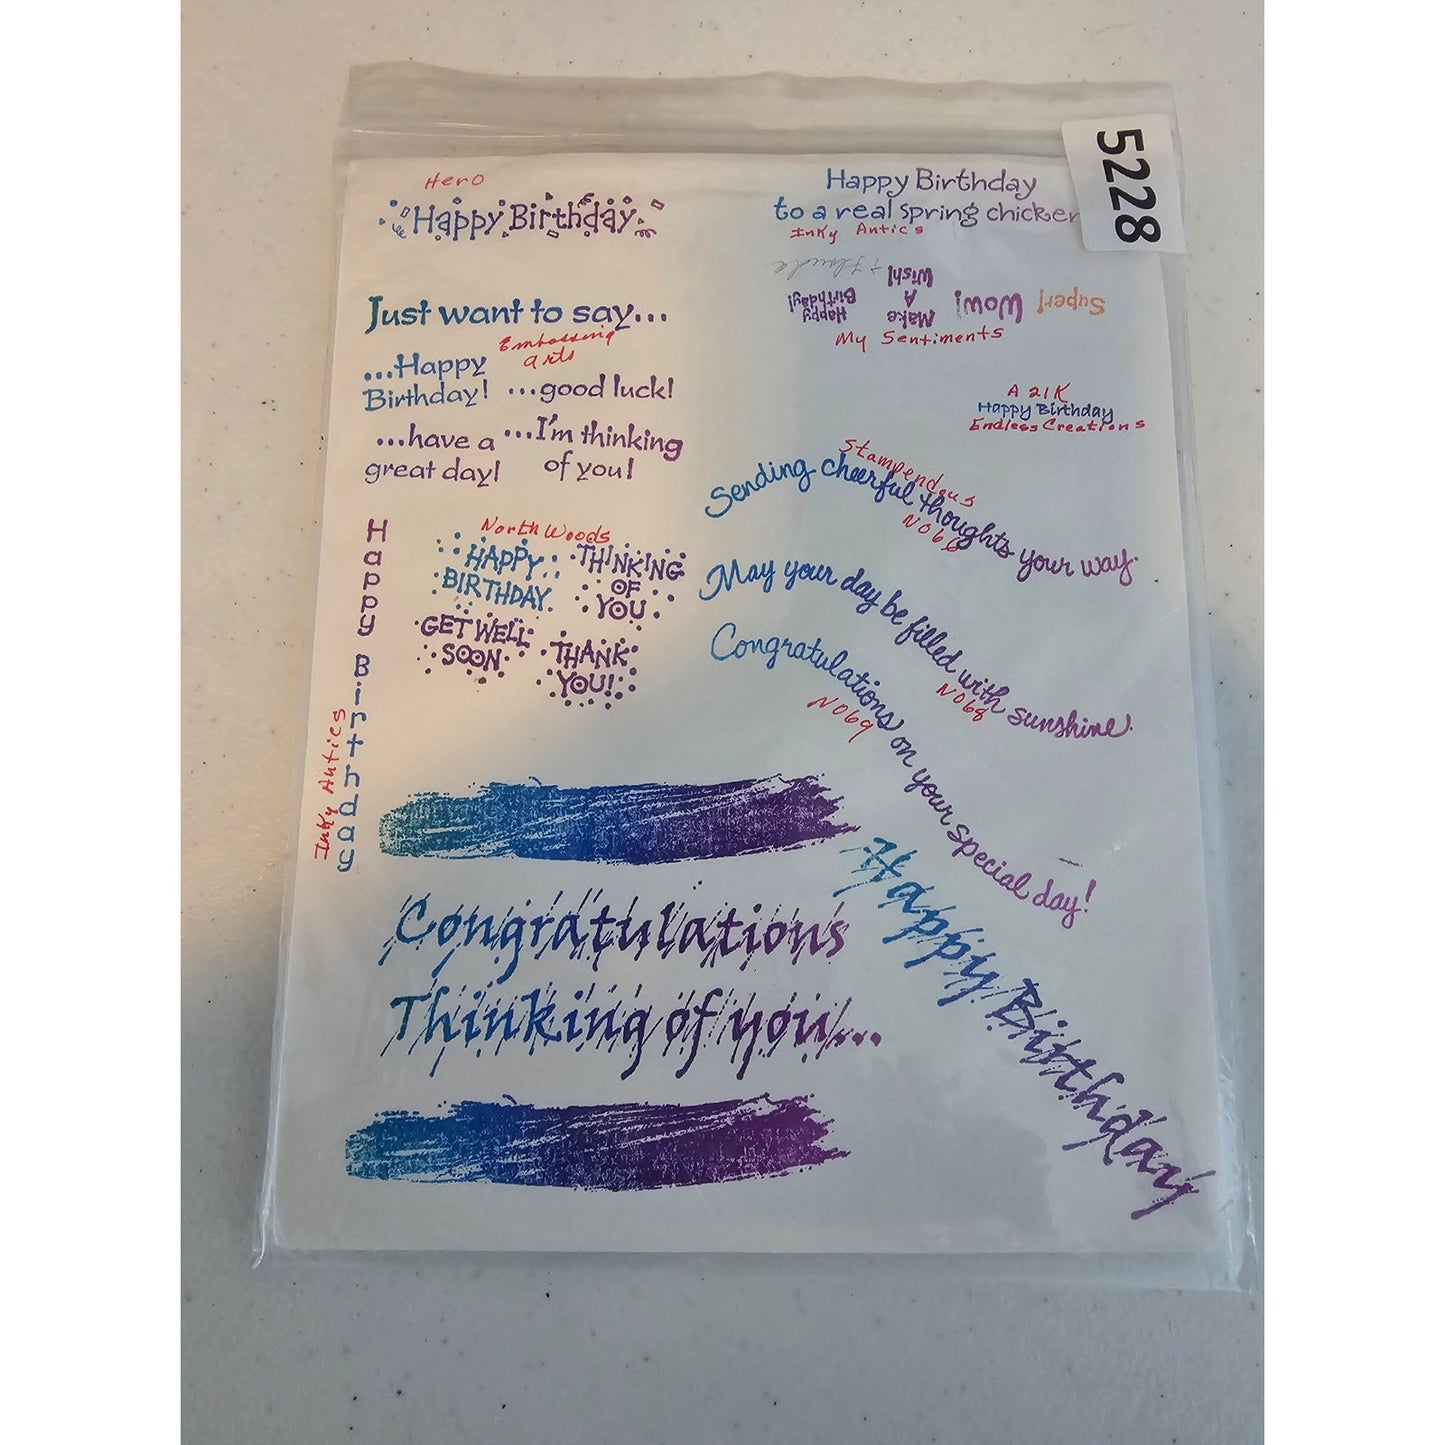 5228
Hero
Happy Birthday
Happy Birthday
to a real spring chicken
Inky Antics
Just want to say...
Embossing
arts
...Happy
Birthday!
...good luck!
...have a
great day!
...I'm thinking
of you!
Happy
Birthday!
Make
A
Wish!
Wow!
Super!
My Sentiments
A 21K
Happy Birthday
Endless Creations
Stampendous
Sending cheerful thoughts your way.
N066
May your day be filled with sunshine!
N068
Congratulations on your special day!
N069
Happy Birthday
Inky Antics
North Woods
HAPPY
BIRTHDAY
THINKING
OF
YOU
GET WELL
SOON
THANK
YOU!
Congratulations
Thinking of you...
Happy Birthday